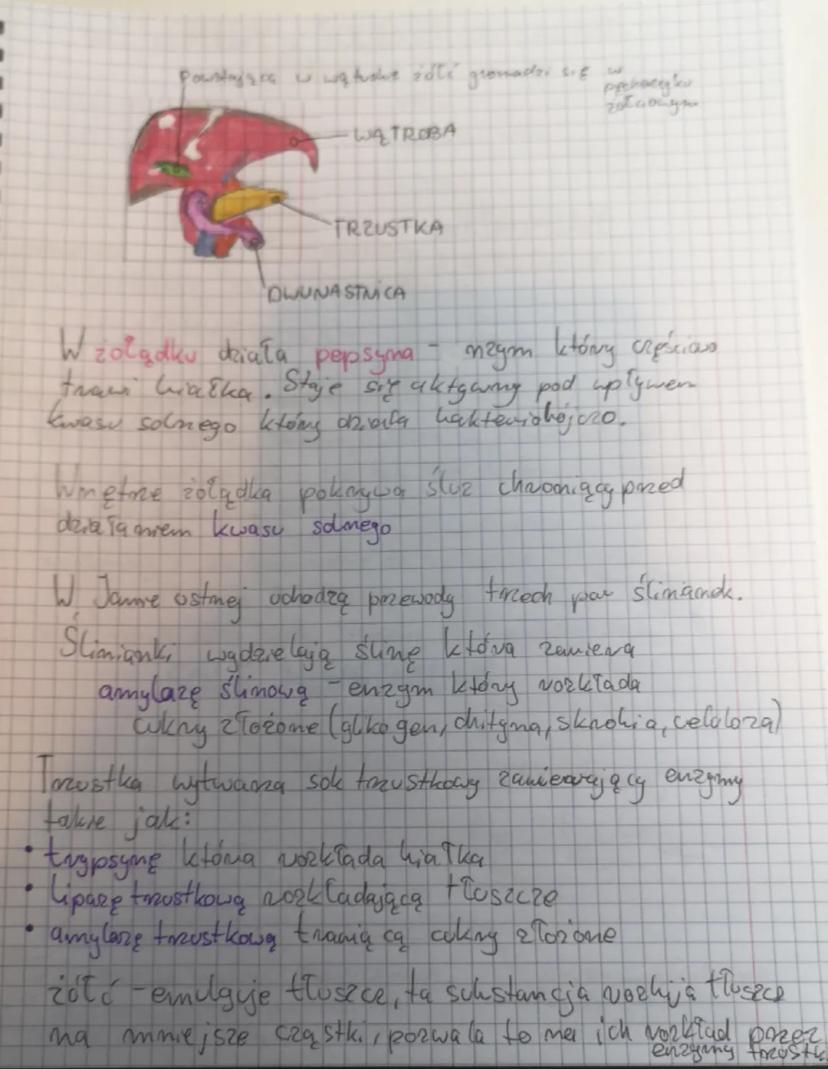 Powstająca w wątrobie żółć gromadzi się w
pęcherzyku
żółciowym
WĄTROBA
TRZUSTKA
DWUNASTNICA
W żołądku działa pepsyna - nzym który częściowo
trawi białka. Staje się aktywny pod wpływem
kwasu solnego który działa bakteriobójczo.
Wnętrze żołądka pokrywa śluz chroniący przed
działaniem kwasu solnego
W Jamie ustnej uchodzą przewody trzech par ślinianek.
Ślinianki wydzielają ślinę która zawiera
amylazę ślinową - enzym który rozkłada
cukry złożone (glikogen, chityna, skrobia, celuloza)
Trzustka wytwarza sok trzustkowy zawierający enzymy
takie jak:
• trypsynę która rozkłada białka
• lipazę trzustkową rozkładającą tłuszcze
• amylazę trzustkową trawiącą cukry złożone
żółć - emulguje tłuszcze, ta substancja rozbija tłuszcze
na mniejsze cząstki, pozwala to na ich rozkład przez
enzymy